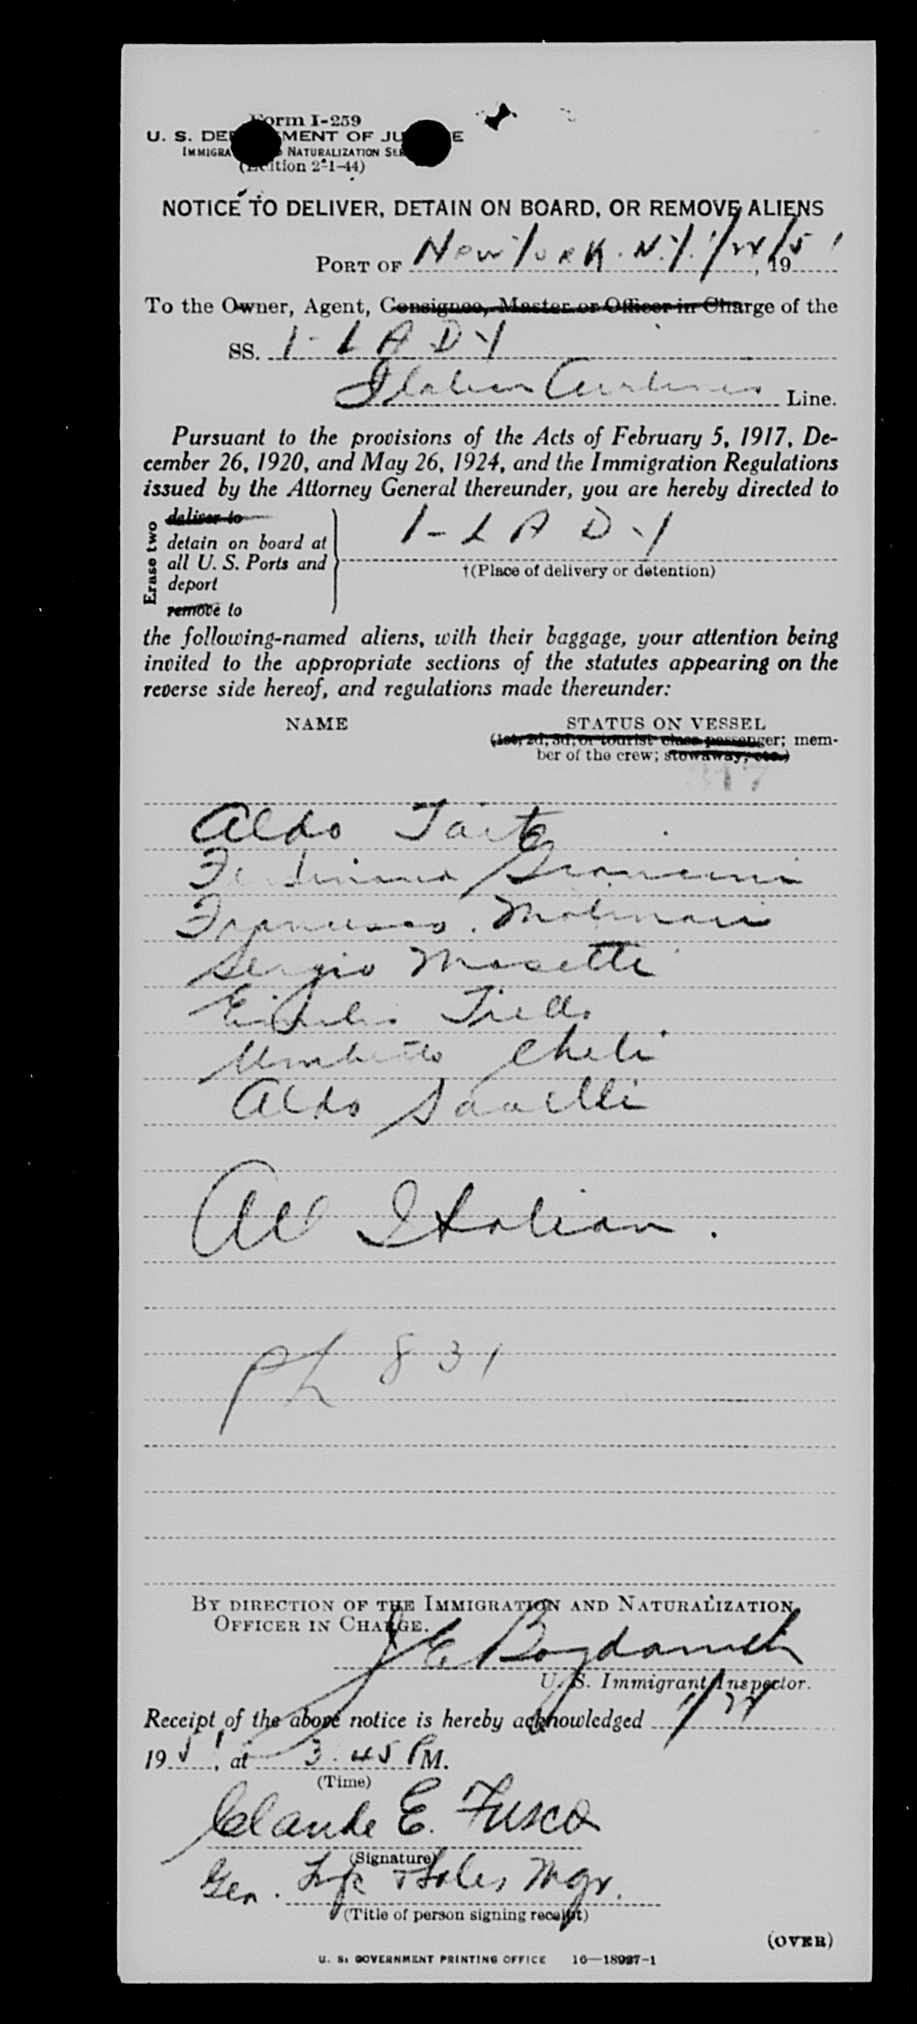 Form I-259
U. S. DEPARTMENT OF JUSTICE
IMMIGRATION AND NATURALIZATION SERVICE
(Edition 2-1-44)
NOTICE TO DELIVER, DETAIN ON BOARD, OR REMOVE ALIENS
PORT OF New York. N.Y. 1/24/51, 19
To the Owner, Agent, Consignee, Master or Officer in Charge of the
SS. I-LADY
Italian Airlines Line.
Pursuant to the provisions of the Acts of February 5, 1917, De-
cember 26, 1920, and May 26, 1924, and the Immigration Regulations
issued by the Attorney General thereunder, you are hereby directed to
Erase two
deliver to
detain on board at
all U. S. Ports and
deport
remove to
I-LADY
†(Place of delivery or detention)
the following-named aliens, with their baggage, your attention being
invited to the appropriate sections of the statutes appearing on the
reverse side hereof, and regulations made thereunder:
NAME STATUS ON VESSEL
(1st, 2d, 3d, or tourist class passenger; mem-
ber of the crew; stowaway, etc.)
Aldo
Francesco Molinari
Sergio Mosetti
Emilio
Umberto Cheli
Aldo Savelli
All Italian.
831
BY DIRECTION OF THE IMMIGRATION AND NATURALIZATION
OFFICER IN CHARGE.
J E Bogdanich
U. S. Immigrant Inspector.
Receipt of the above notice is hereby acknowledged 1/24
1951, at 3.45 PM.
(Time)
Claude E. Fusco
(Signature)
Gen. & Sales Mgr.
(Title of person signing receipt)
(OVER)
U. S. GOVERNMENT PRINTING OFFICE 16—18997-1